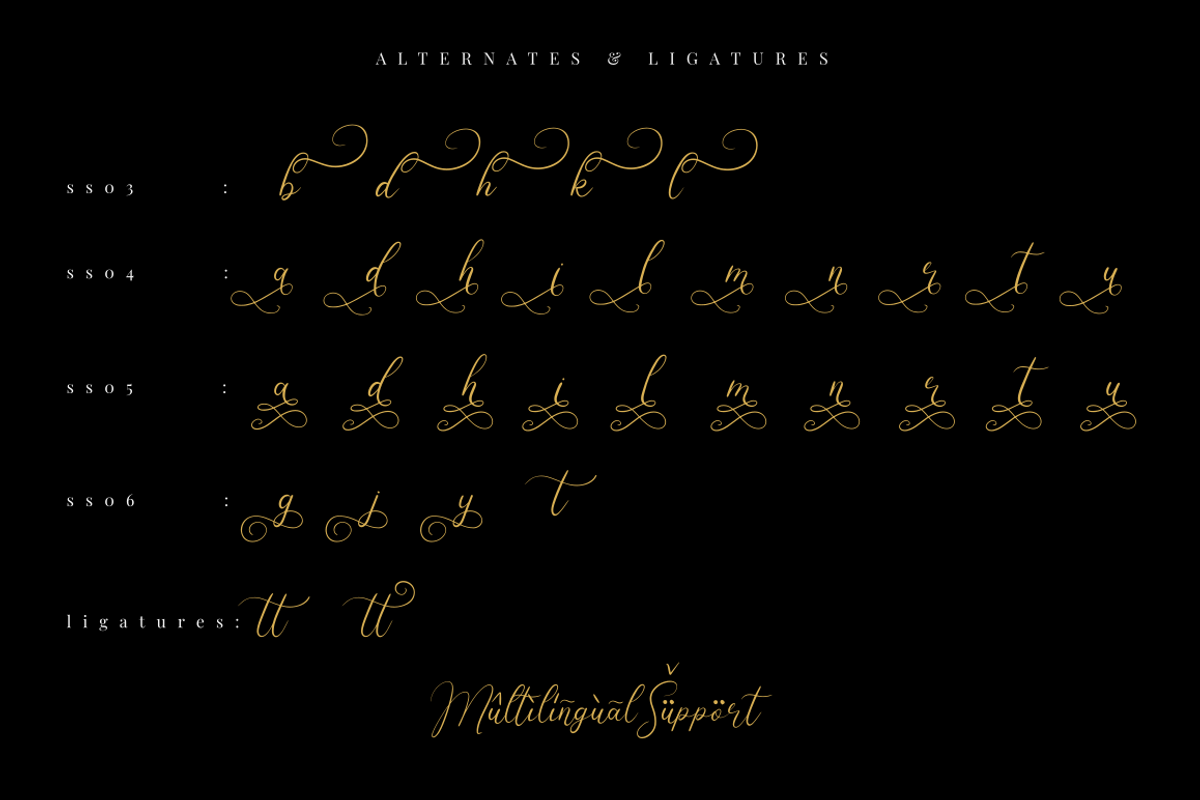 ALTERNATES & LIGATURES
ss03 : b d h k l
ss04 : a d h i l m n r t u
ss05 : a d h i l m n r t u
ss06 : g j y t
ligatures: tt tt
Mûltìlíñgùãl Šüppört